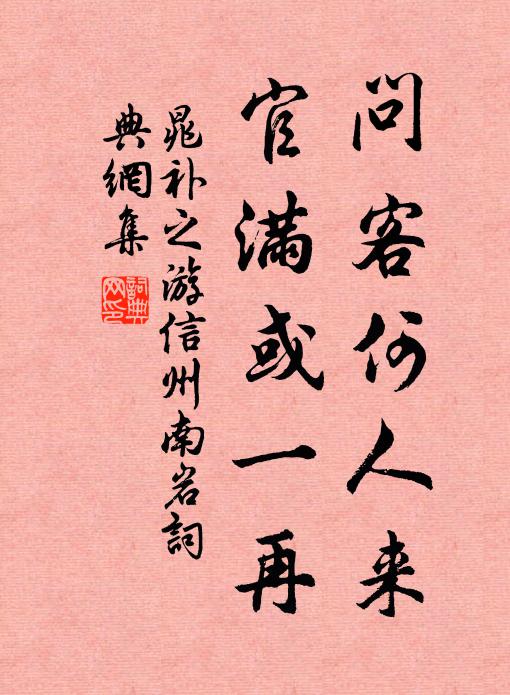 問客何人来
官滿或一再
晁补之游信州南岩詞
典網集
詞典
网印